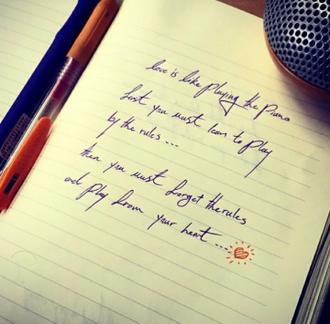 love is like playing the piano
first you must learn to play
by the rules ...
then you must forget the rules
and play from your heart ....